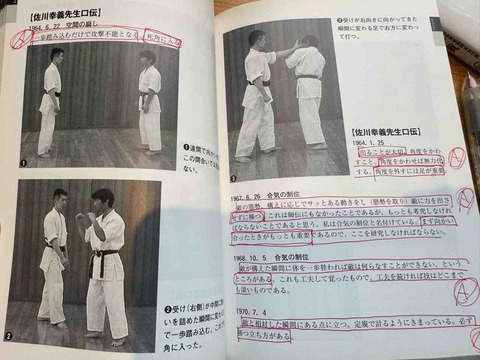 【佐川幸義先生口伝】
1964.6.22 空間の崩し
一歩踏み込むだけで攻撃不能となる。死角に入る
❶遠間で向かい
この間合いでは
ない。
❶
❷受け（右側）が中間に
いを詰めた瞬間に
で一歩踏み込む。これ
角に入った。
❷
❸受けが右向きに向かってきた
瞬間に変わる足で右方に変わっ
て打つ。
❸
【佐川幸義先生口伝】
1964.1.25
出ることが大切。角度をかわ
すこと。角度をかわせば無力化
する。角度を外すには足が重要
1967.6.26 合気の制位
敵の態勢、構えに応じてサッとある動きをし（態勢を取り）敵に力を出さ
せずに勝つ。これは師伝にもなかったことであるが、もっとも考究しなけれ
ばならないことであると思う。私は合気の制位と名付けている。まず向かい
合ったときがもっとも重要であるので、ここを研究しなければならない。
1968.10.5 合気の制位
敵が構えた瞬間に体を一歩替われば敵は何らなすことができない、という
ところがある。これも工夫して覚ったもので、工夫を続ければ技はどこまで
も深いものである。
1970.7.4
敵と相対した瞬間にある点に立つ。定規で計るようにきまっている。必ず
勝つ立ち方がある。